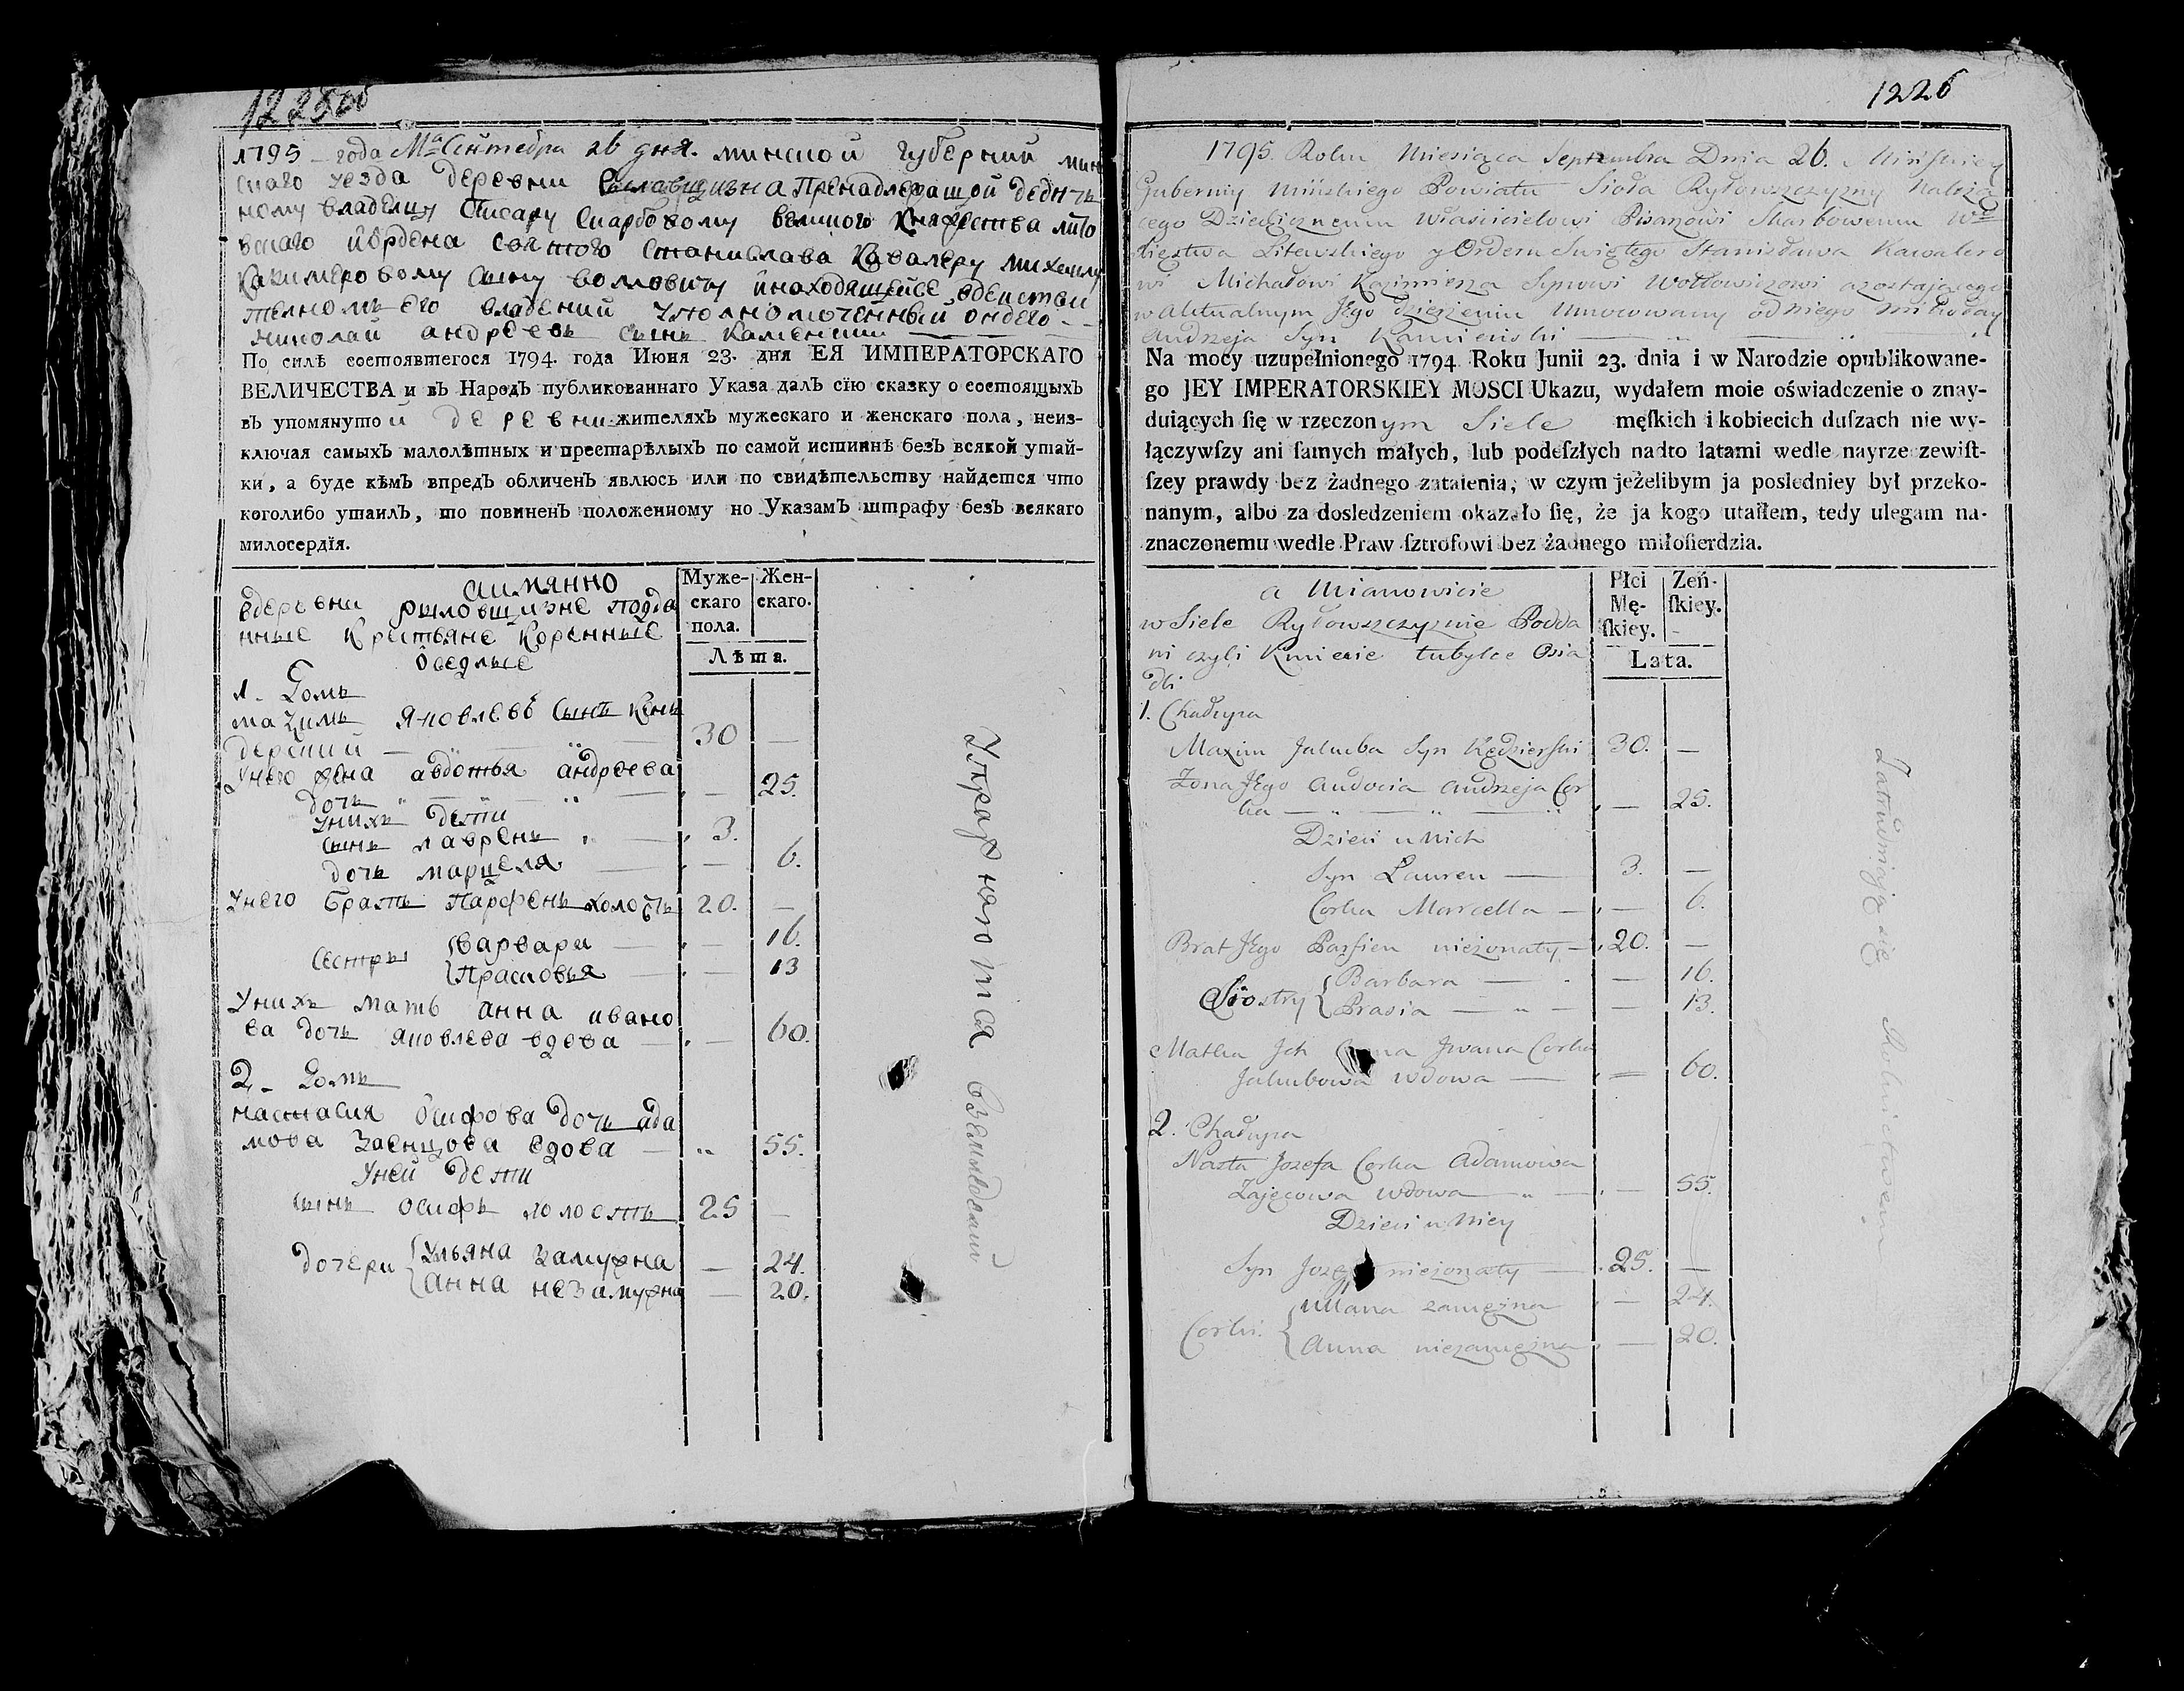 1225об
1795 года Мца Сентебра 26 дня. минской губерний мин
скаго уезда деревни Рыловщизна Пренадлежащой дедич
ному владелцу Писару Скарбовому великого Княжества лито
вскаго и Ордена святого Станислава Кавалеру михаилу
Казимеровому сыну воловичу инаходящейсе вдействи
телномъ его владений Уполномоченный онаго
николай андреевъ сынъ каменский
По силѣ состоявшегося 1794. года Июня 23. дня ЕЯ ИМПЕРАТОРСКАГО
ВЕЛИЧЕСТВА и въ Народъ публикованнаго Указа далъ сїю сказку о состоящыхъ
въ упомянутой деревни жителяхъ мужескаго и женскаго пола, неиз-
ключая самыхъ малолѣтных и престарѣлыхъ по самой истиннѣ безъ всякой утай-
ки, а буде кѣмъ впредъ обличенъ явлюсь или по свидѣтельству найдется что
коголибо утаилъ, то повиненъ положенному по Указамъ штрафу безъ всякаго
милосердїя.
аимянно
вдеревни рыловщизне подда
нные Крестьяне Коренные
Оседлые
Муже-
скаго
пола.
Жен-
скаго.
Лѣта.
1. Домъ
мазимъ яковлевъ сынъ Кен
дерский 30 —
Унего жена авдотья андреева
дочь — 25.
Унихъ дети
сынъ лавренъ 3.
дочъ марцеля — 6.
Унего братъ Парфенъ холостъ 20. —
Сестры {варвари — 16.
{Прасковья — 13
Унихъ мать анна ивано
ва дочь яковлева вдова — 60.
2. Домъ
настасия Осифова дочъ ада
мова Заенцова вдова 55.
Уней дети
сынъ осифъ холостъ 25 —
дочери {Ульяна замужна — 24.
{анна незамужна — 20.
Упражняютца
1226
1795. Roku Miesiąca Septembra Dnia 26. Mińskiey
Gubernij Mińskiego Powiatu Sioła Ryłowszczyzny Należą
cego Dziedzicznemu Właścicielowi Pisarzowi Skarbowemu We
Xięztwa Litewskiego y Orderu Swiętego Stanisława Kawalero
wi Michałowi Kazimierza Synowi Wołłowiczowi azostającego
w Aktualnym Jego dzierżeniu Umocowany odniego Mikołay
Andrzeja Syn Kamieński
Na mocy uzupełnionego 1794 Roku Junii 23. dnia i w Narodzie opublikowane-
go JEY IMPERATORSKIEY MOSCI Ukazu, wydałem moie oświadczenie o znay-
duiących ſię w rzeczonym Siele męſkich i kobiecich duſzach nie wy-
łączywſzy ani ſamych małych, lub podeſzłych nadto latami wedle nayrzeczewiſt-
ſzey prawdy bez żadnego zataienia, w czym jeżelibym ja posledniey był przeko-
nanym, albo za dosledzeniem okazało ſię, że ja kogo utaiłem, tedy ulegam na-
znaczonemu wedle Praw ſztrofowi bez żadnego miłoſierdzia.
a Mianowicie
w Siele Ryłowszczyznie Podda
ni czyli Kmiecie tubylce Osia
dli
Płci
Mę-
ſkiey.
Zeń-
ſkiey.
Lata.
1. Chałupa
Maxim Jakuba Syn Kędzierski 30. —
Zona Jego Audocia Andrzeja Cor
ka — 25.
Dzieci u Nich
Syn Lauren 3. —
Corka Marcella — 6.
Brat Jego Parfien nieżonaty 20. —
Siostry {Barbara — 16.
{Prasia — 13.
Matka Ich Anna Jwana Corka
Jakubowa Wdowa — 60.
2. Chałupa
Nasta Jozefa Corka Adamowa
Zajęcowa Wdowa — 55.
Dzieci u Niey
Syn Jozef nieżonaty 25. —
Corki. {Ullana zamężna — 24.
{Anna niezamężna — 20.
Zatrudniają się Rolnictwem